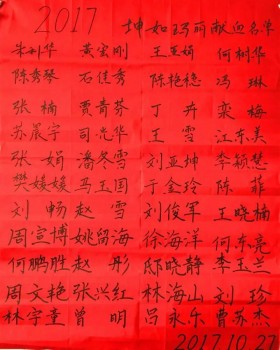 2017 坤如玛丽献血名单
朱树华 黄宏刚 王 娟 何树华
陈秀琴 石佳秀 陈艳穗 冯琳
张楠 贾青芬 丁卉 栾梅
苏晨宇 司光华 王雪 江东美
张娟 潘冬雪 刘亚坤 李颖慧
樊媛媛 马玉国 于金玲 陈菲
刘畅 赵雪 刘俊军 王晓楠
周宣博 姚留海 徐海洋 何东亮
何鹏胜 赵彤 邸晓静 李玉兰
周文艳 张兴红 林海山 刘珍
林宇童 曾明 吕永乐 曹苏杰
2017.10.27